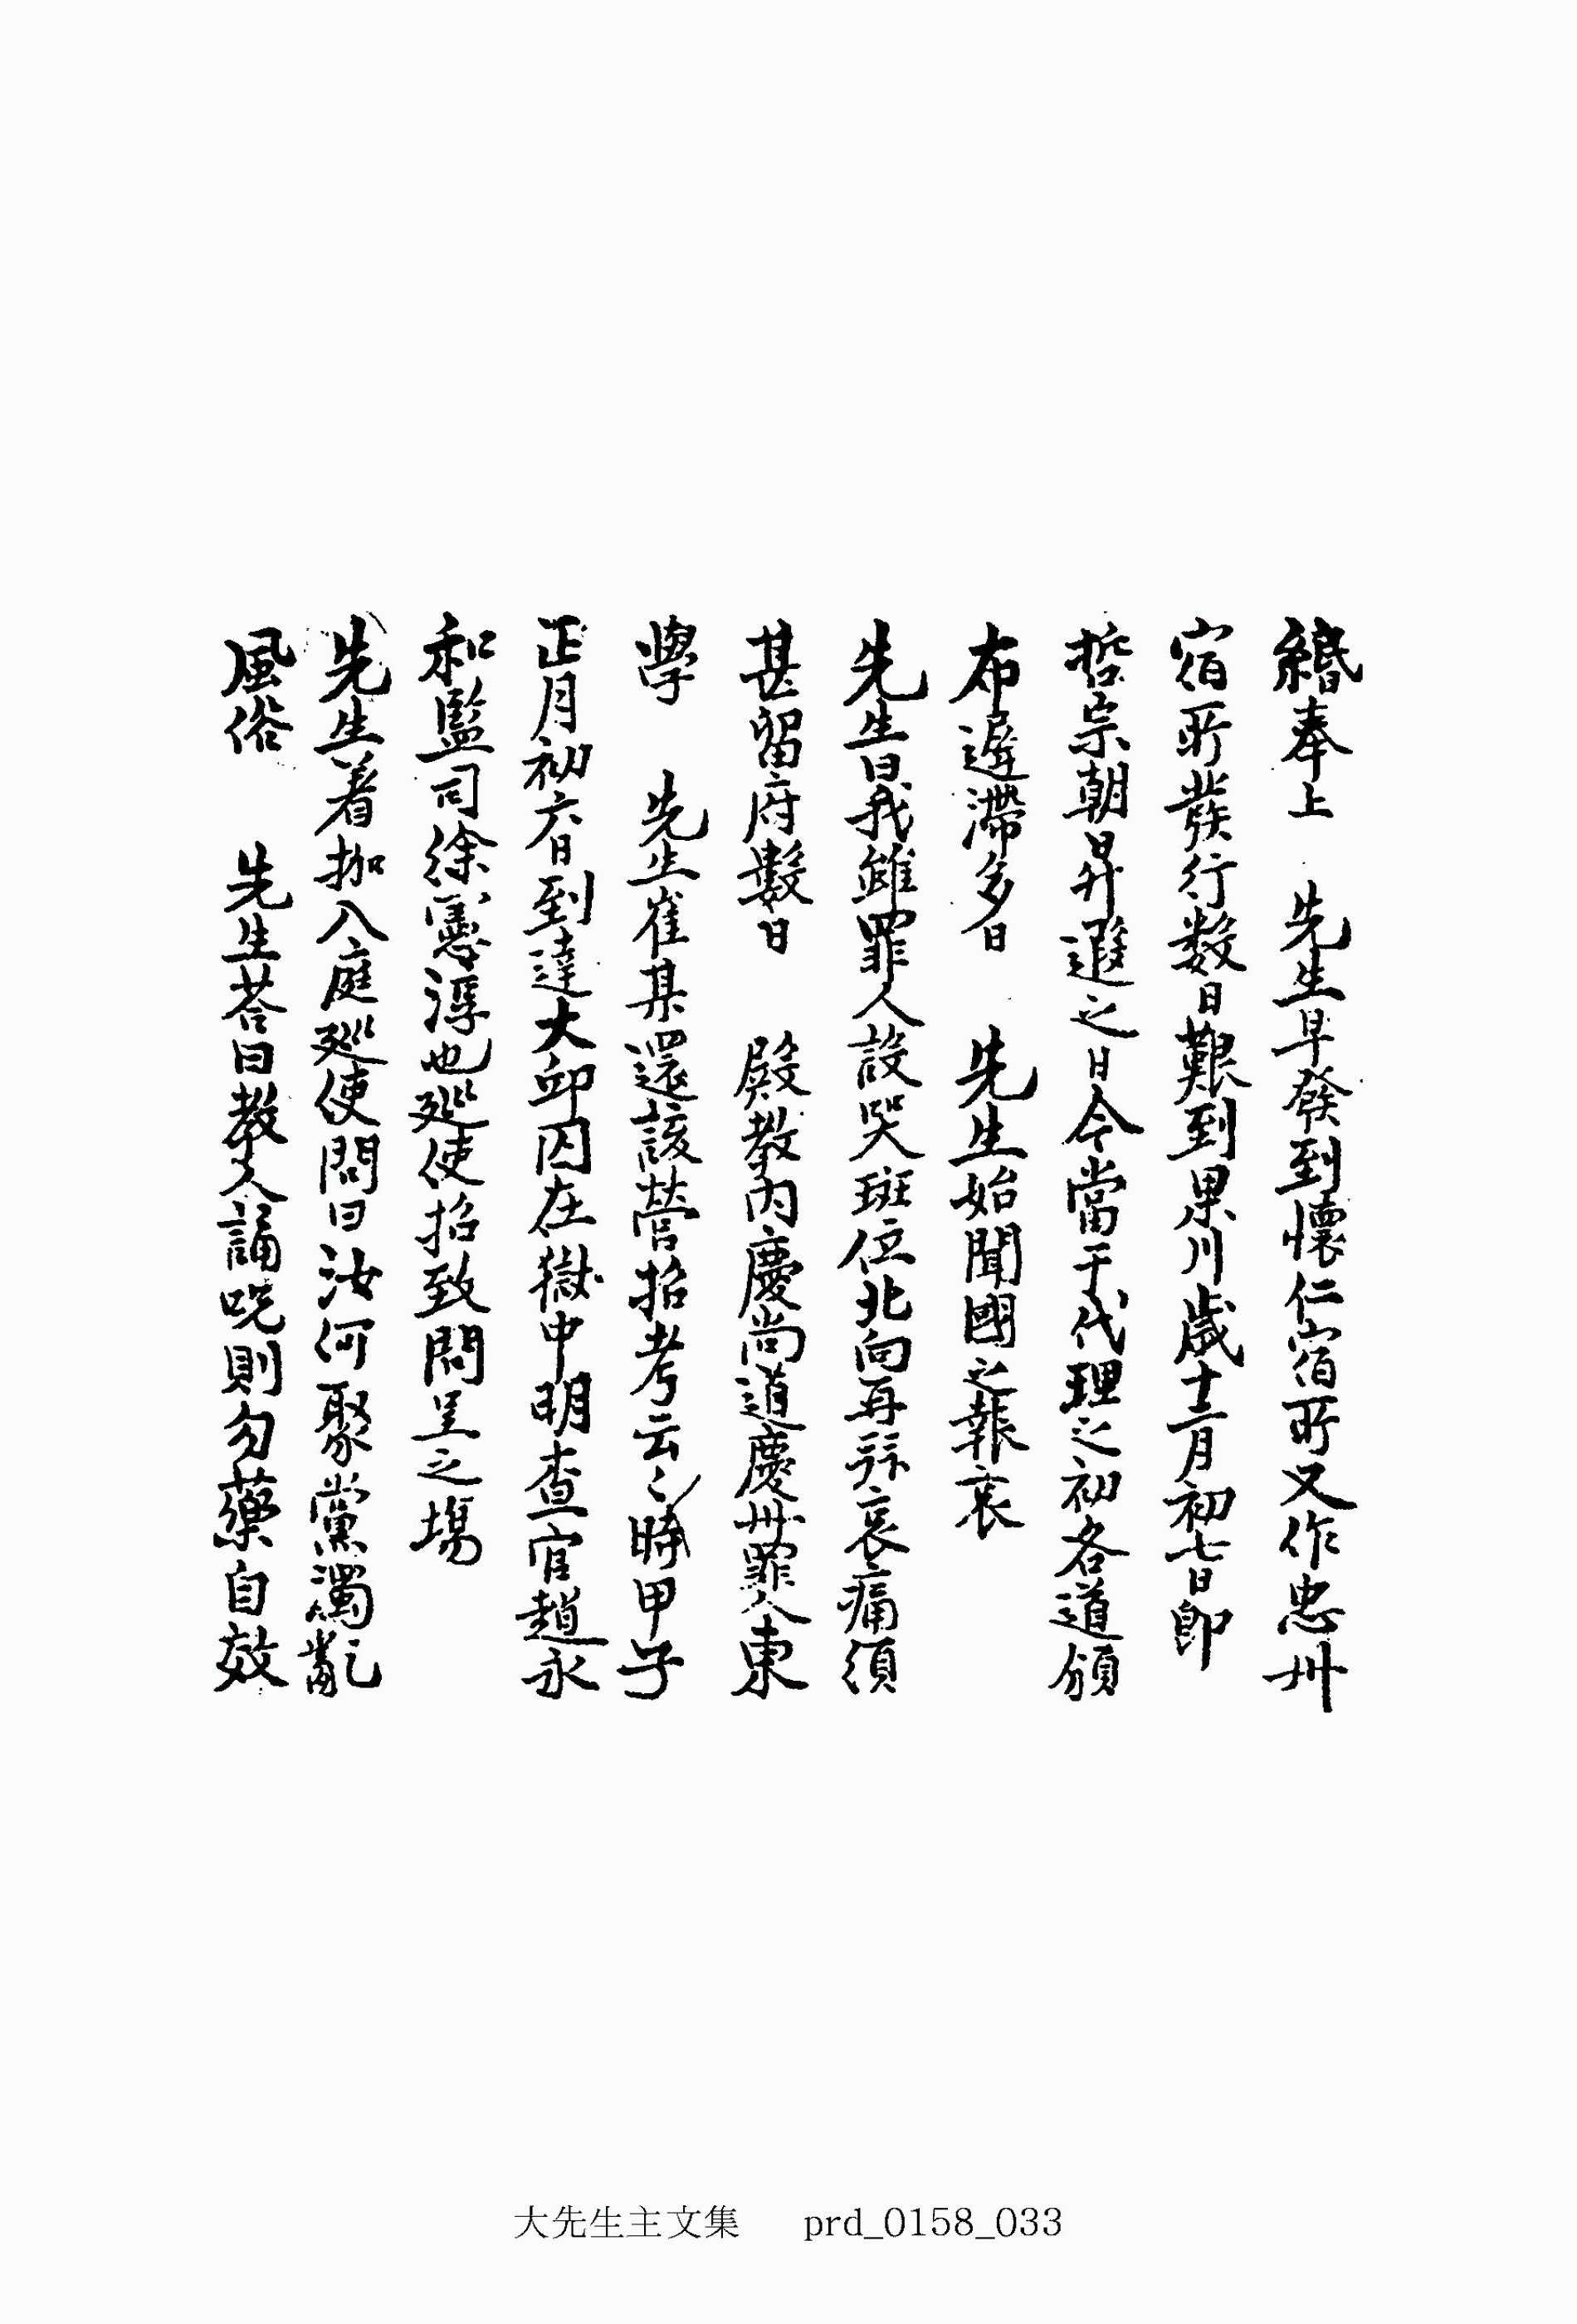 緡奉上 先生早發到懷仁宿所又作忠州
宿所發行数日艱到果川歲十二月初七日卽
哲宗朝昇遐之日今當于代理之初各道頒
布遲滯多日 先生始聞國之報哀
先生曰我雖罪人設哭班位北向再拜哀痛須
甚留府數日 殿教內慶尚道慶州罪人東
學 先生崔某還該營招考云々時甲子
正月初六日到達大邱囚在獄中明查官趙永
和監司徐憲淳也廵使招致問呈之場
先生着枷入庭廵使問曰汝何聚黨濁亂
風俗 先生荅曰教人誦呪則勿藥自效
大先生主文集 prd_0158_033